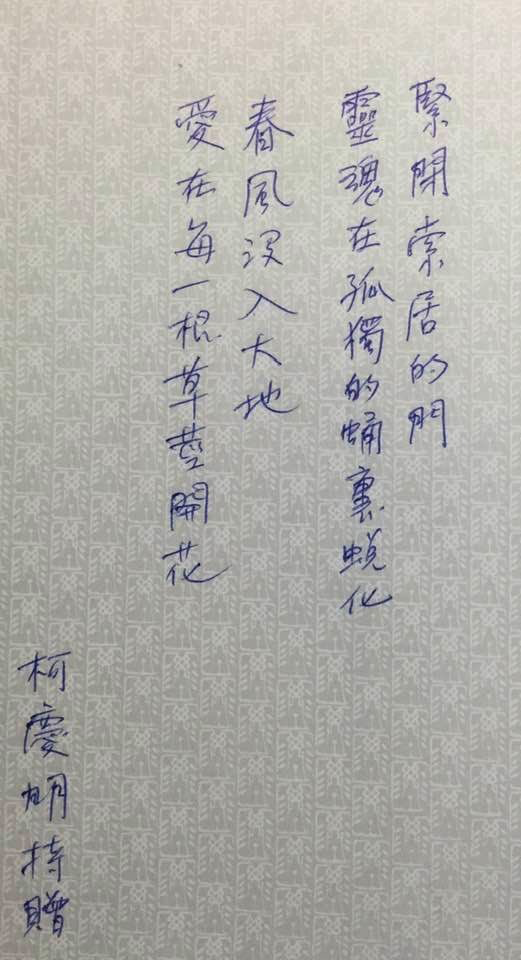 緊閉索居的門
靈魂在孤獨的蛹裏蛻化
春風沒入大地
愛在每一根草莖開花
柯慶明持贈